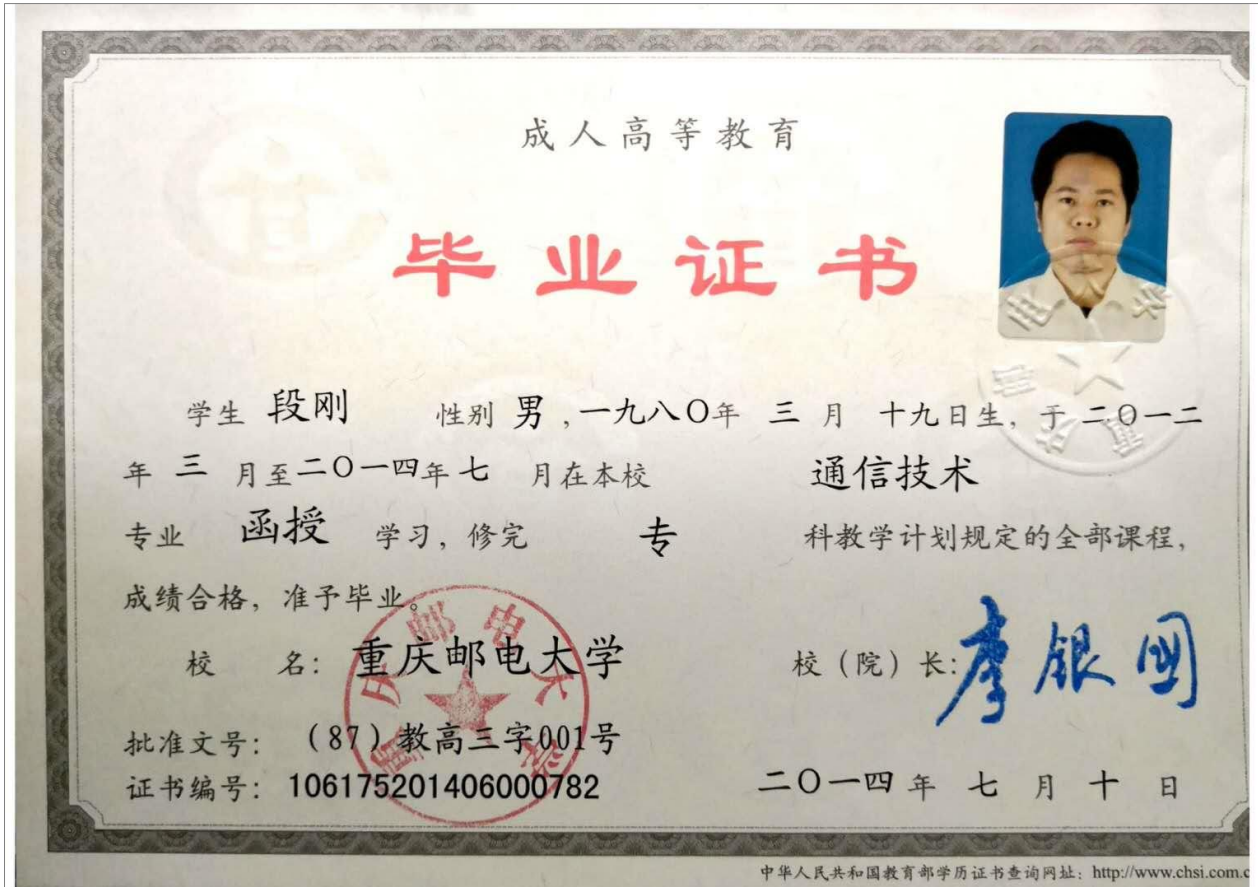 成人高等教育
毕业证书
学生 段刚 性别 男，一九八〇年 三 月 十九日生，于二〇一二
年 三 月至二〇一四年 七 月在本校 通信技术
专业 函授 学习，修完 专 科教学计划规定的全部课程，
成绩合格，准予毕业。
校 名：重庆邮电大学 校（院）长：李银国
批准文号：（87）教高三字001号
证书编号：106175201406000782 二〇一四 年 七 月 十 日
重庆邮电大学
中华人民共和国教育部学历证书查询网址：http://www.chsi.com.c